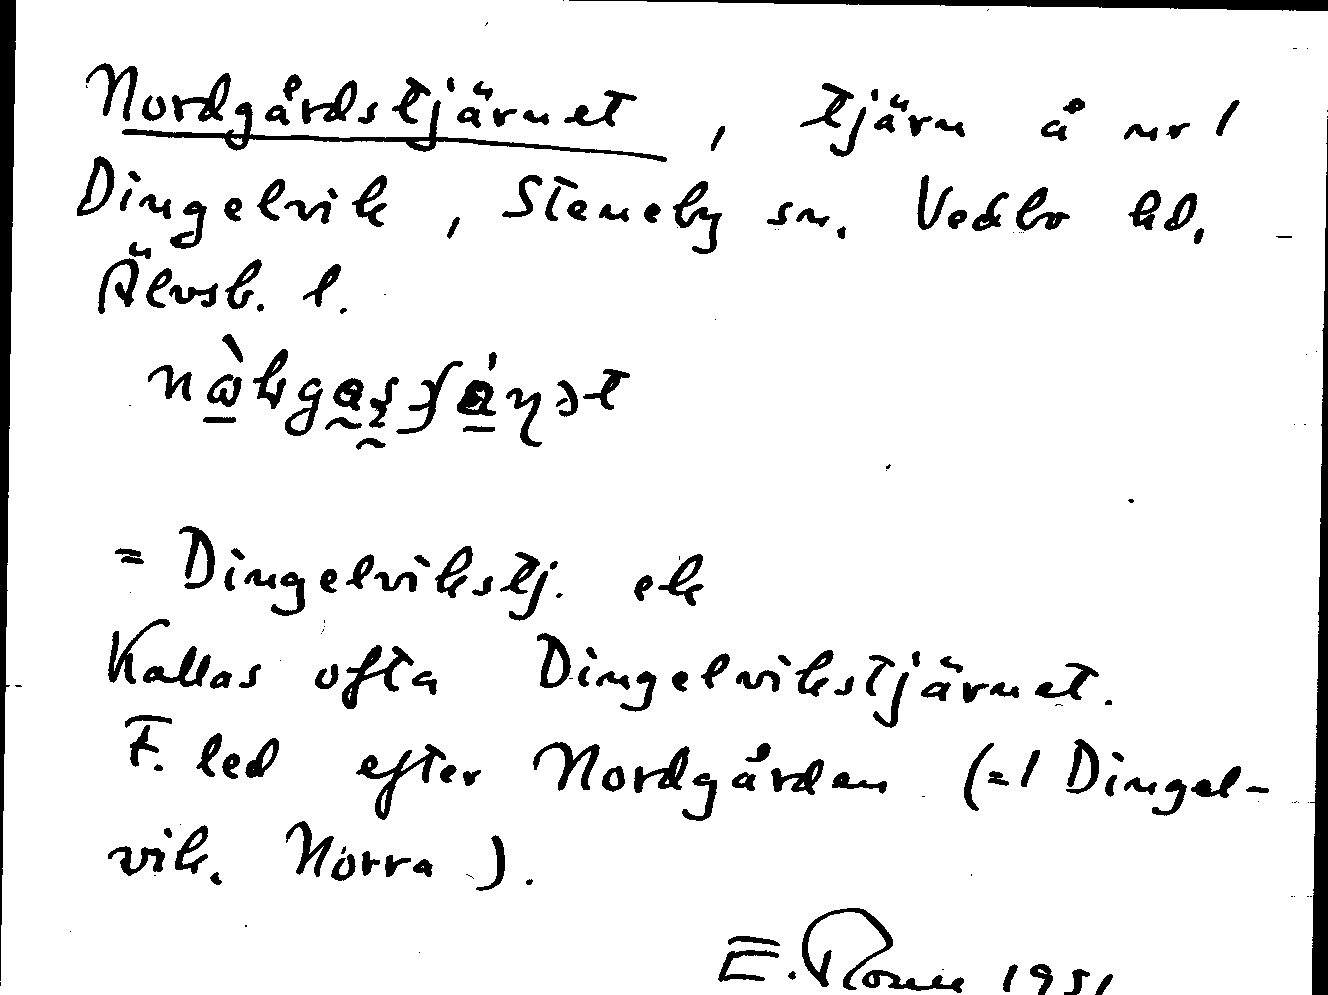 Nordgårdstjärnet, tjärn å nr 1
Dingelvik, Steneby sn. Vedbo hd.
Älvsb. l.
= Dingelvikstj. ek
Kallas ofta Dingelvikstjärnet.
F. led efter Nordgården (=1 Dingel-
vik. Norra).
E. 1951